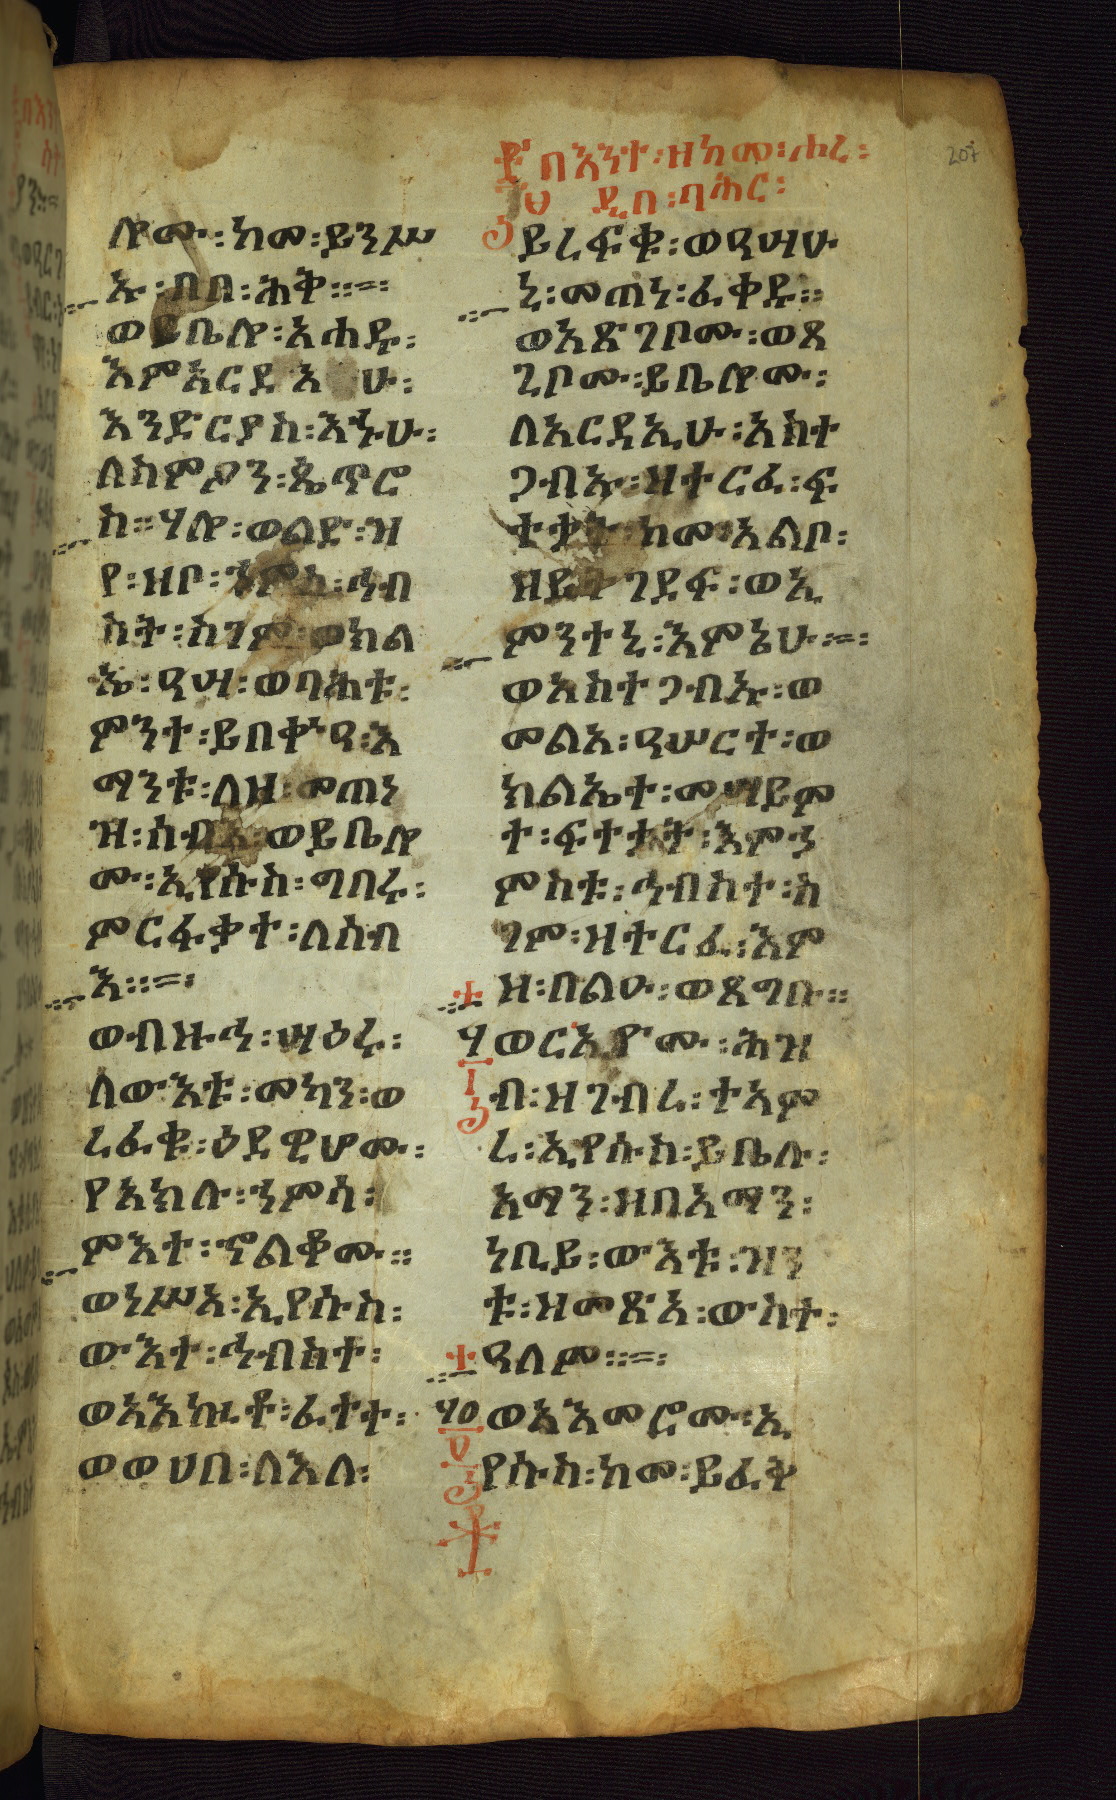 ፱ በእንተ፡ዘከመ፡ሐረ፡
ዲበ፡ባሕር፡
207
ሎሙ፡ከመ፡ይንሥ
ኡ፡በበ፡ሕቅ።
ወይቤሎ፡አሐዱ፡
እምአርደ
እንድርያስ፡እኁሁ፡
ለስምዖን፡ጴጥሮ
ስ። ሃሎ፡ወልድ፡ዝ
የ፡ዘቦ፡ኀምስ፡ኅብ
ስት፡ስገም፡ወክል
ኤ፡ዓሣ፡ወባሕቱ፡
ምንተ፡ይበቍዓ፡እ
ማንቱ፡ለዝ፡መጠነ
ዝ፡ሰብእ፡ወይቤሎ
ሙ፡ኢየሱስ፡ግበሩ፡
ምርፋቃተ፡ለሰብ
እ።
ወብዙኅ፡ሣዕሩ፡
ለውእቱ፡መካን፡ወ
ረፈቁ፡ዕደዊሆሙ፡
የአክሉ፡ኀምሳ፡
ምእተ፡ኆልቆሙ።
ወነሥአ፡ኢየሱስ፡
ውእተ፡ኅብስተ፡
ወአእኰቶ፡ፈተተ፡
ወወሀበ፡ለእለ፡
ይረፍቁ፡ወዓሣሁ
ኒ፡መጠነ፡ፈቀዱ።
ወአጽገቦሙ፡ወጸ
ጊቦሙ፡ይቤሎሙ፡
ለአርዳኢሁ፡አስተ
ጋብኡ፡ዝተርፈ፡ፍ
ተቃተ፡ከመ፡አልቦ፡
ዘይትገደፍ፡ወኢ
ምንተኒ፡እምኔሁ።
ወአስተጋብኡ፡ወ
መልአ፡ዓሠርተ፡ወ
ክልኤተ፡መሣይም
ተ፡ፍተታት፡እምኃ
ምስቱ፡ኅብስተ፡ስ
ገም፡ዝተርፈ፡እም
ዝ፡በልዑ፡ወጸግቡ።
፶ ወርእዮሙ፡ሕዝ
ብ፡ዝገብረ፡ተአም
ረ፡ኢየሱስ፡ይቤሉ፡
አማን፡ዘበአማን፡
ነቢይ፡ውእቱ፡ዝን
ቱ፡ዝመጽአ፡ውስተ፡
ዓለም።
፶፩ ወአእመሮሙ፡ኢ
የሱስ፡ከመ፡ይፈቅ